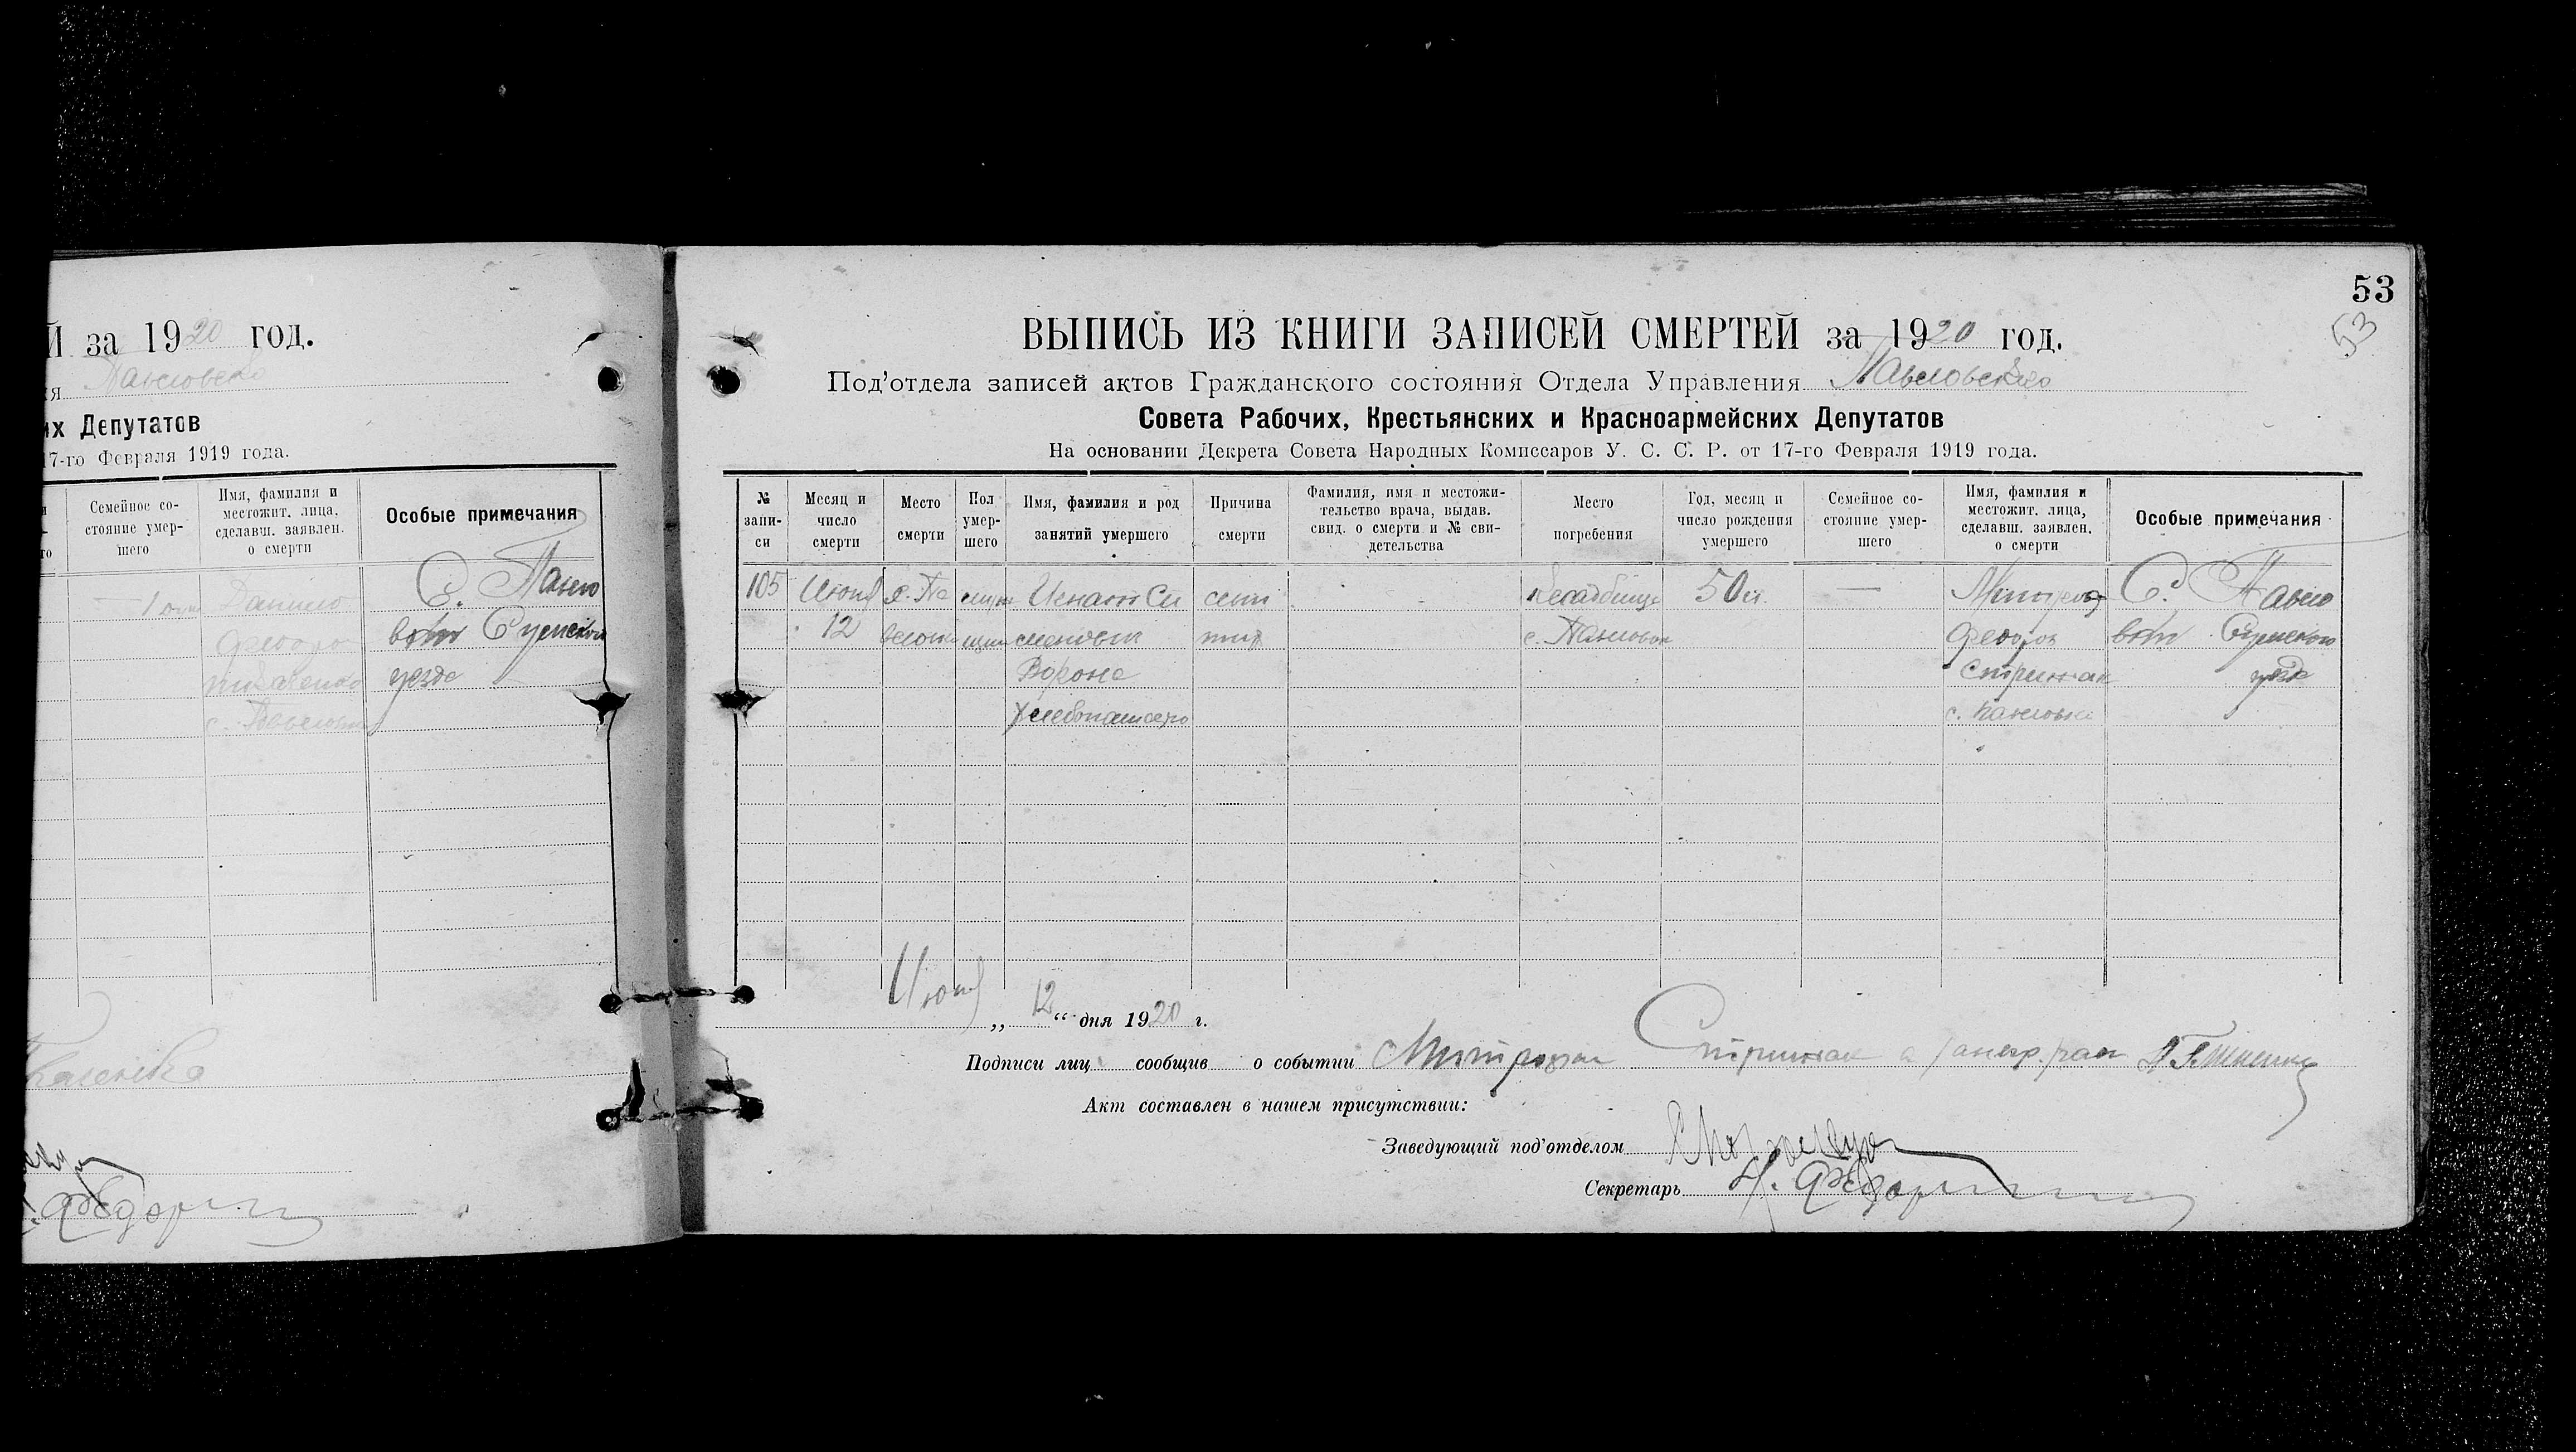 Й за 1920 год.
я
их Депутатов
17-го Февраля 1919 года.
Семейное со-
стояние умер-
шего
Имя, фамилия и
местожит. лица,
сделавш. заявлен.
о смерти
Особые примечания
Данило
с. Павло
Федоро
вки Сумского
уезда
с. Павловки
53
53
ВЫПИСЬ ИЗ КНИГИ ЗАПИСЕЙ СМЕРТЕЙ за 1920 год.
Под'отдела записей актов Гражданского состояния Отдела Управления Павловского
Совета Рабочих, Крестьянских и Красноармейских Депутатов
На основании Декрета Совета Народных Комиссаров У. С. С. Р. от 17-го Февраля 1919 года.
№
запи-
си
Месяц и
число
смерти
Место
смерти
Пол
умер-
шего
Имя, фамилия и род
занятий умершего
Причина
смерти
Фамилия, имя и местожи-
тельство врача, выдав.
свид. о смерти и № сви-
детельства
Место
погребения
Год, месяц и
число рождения
умершего
Семейное со-
стояние умер-
шего
Имя, фамилия и
местожит. лица,
сделавш. заявлен.
о смерти
Особые примечания
105
Июня
12
с. Па
вловка
Игнат
Ворона
хлебопашец
с. Павловка
50 л.
—
Митрофан
Федоров
Стрижак
с. Павловка
С. Павло
вки Сумского
уезда
Июня „ 12 “ дня 1920 г.
Подписи лиц сообщив о событии Митрофан Стрижак а
Акт составлен в нашем присутствии:
Заведующий под'отделом
Секретарь